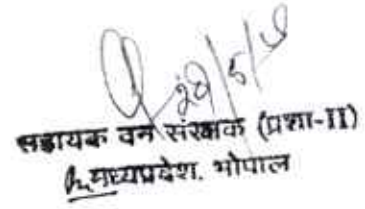 सहायक वन संरक्षक (प्रशा-II)
मध्यप्रदेश, भोपाल